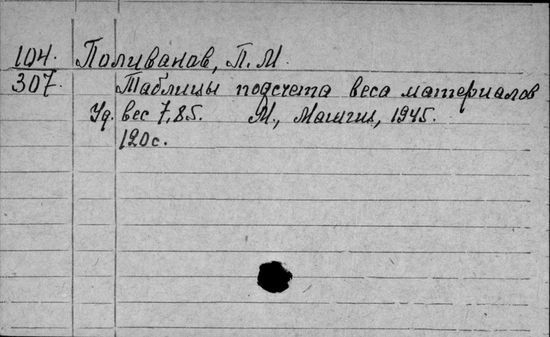 104. Поливанов, П. М.
307. Таблицы подсчета веса материалов
Уд. вес 7,85. М., Машгиз, 1945.
120 с.